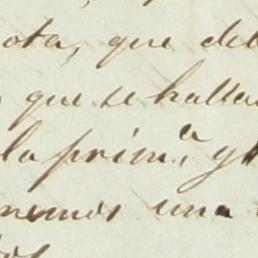 ota, que deb
que se halla
la prim.ª y
nemos una